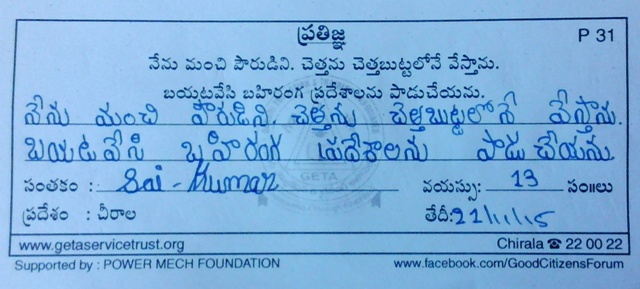 ప్రతిజ్ఞ
P 31
నేను మంచి పౌరుడిని. చెత్తను చెత్తబుట్టలోనే వేస్తాను.
బయటవేసి బహిరంగ ప్రదేశాలను పాడుచేయను.
నేను మంచి పౌరుడిని. చెత్తను చెత్తబుట్టలోనే వేస్తాను.
బయటవేసి బహిరంగ ప్రదేశాలను పాడుచేయను.
సంతకం : Sai - Kumar వయస్సు: 13 సం॥లు
ప్రదేశం : చీరాల తేదీ: 22/11/15
GETA
www.getaservicetrust.org Chirala ☎ 22 00 22
Supported by : POWER MECH FOUNDATION www.facebook.com/GoodCitizensForum